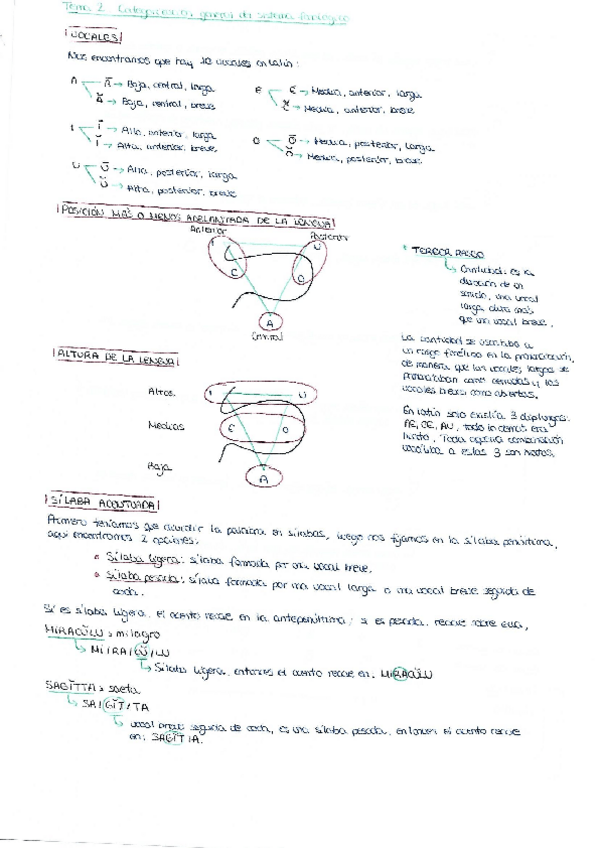 Tema 2. general del sistema fonológico
¡VOCALES!
Nos encontramos que hay 10 vocales en latín:
A Ā → Baja, central, larga
Ă → Baja, central, breve
E Ē → Media, anterior, larga
Ĕ → Media, anterior, breve
I Ī → Alta, anterior, larga
Ĭ → Alta, anterior, breve
O Ō → Media, posterior, larga
Ŏ → Media, posterior, breve
U Ū → Alta, posterior, larga
Ŭ → Alta, posterior, breve
¡POSICIÓN MÁS O MENOS ADELANTADA DE LA LENGUA!
Anterior Posterior
I U
E O
A
Central
* TERCER RASGO
↳ Cantidad: es la
duración de un
sonido, una vocal
larga dura más
que una vocal breve.
La cantidad se asociaba a
un rasgo fonético en la pronunciación,
de manera que las vocales largas se
pronunciaban como cerradas y las
vocales breves como abiertas.
En latín solo existía 3 diptongos:
AE, OE, AU, todo lo demás era
hiato. Toda combinación
vocálica a estas 3 son hiatos.
¡ALTURA DE LA LENGUA!
Altas I U
Medias E O
Baja A
¡SÍLABA ACENTUADA!
Primero teníamos que dividir la palabra en sílabas, luego nos fijamos en la sílaba penúltima,
aquí encontramos 2 opciones:
Sílaba ligera: sílaba formada por una vocal breve.
Sílaba pesada: sílaba formada por una vocal larga o una vocal breve seguida de
coda.
Si es sílaba ligera, el acento recae en la antepenúltima; si es pesada, recae sobre ella.
MIRACŬLU > milagro
↳ MI/RA/CŬ/LU
↳ Sílaba ligera, entonces el acento recae en: MIRACŬLU
SAGĬTTA > saeta
↳ SA/GĬT/TA
↳ vocal breve seguida de coda, es una sílaba pesada, entonces el acento recae
en: SAGĬTTA.